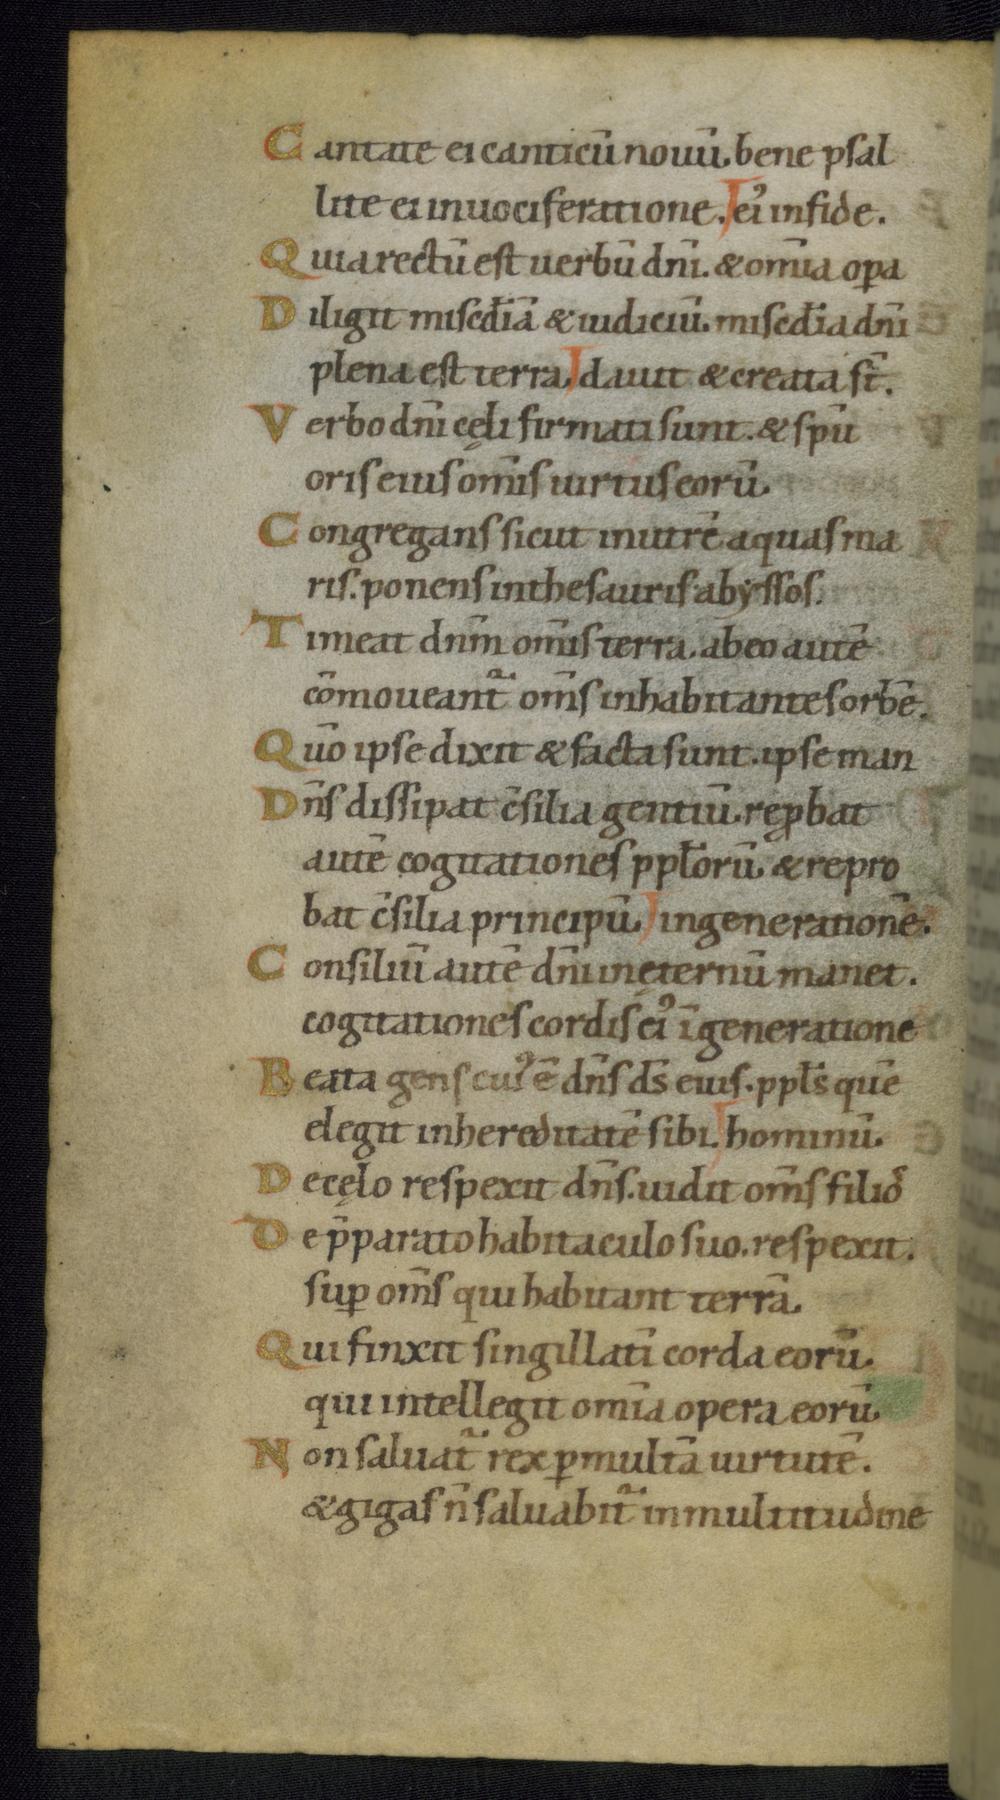 Cantate ei canticū nouū. bene psal
lite ei inuociferatione. ei᾽ infide.
Quia rectū est uerbū dnī. & om̄ia oꝑa
Diligit misc̄diā & iudiciū. misc̄dia dnī
plena est terra. dauit & creata st̄.
Verbo dnī cęli firmati sunt. & spū
oris eius om̄is uirtus eorū.
Congregans sicut inutrē aquas ma
ris. ponens inthesauris abyssos.
Timeat dnm̄ om̄is terra. ab eo autē
cōmoueant̄ᷓ om̄s inhabitantes orbē.
Qūo ipse dixit & facta sunt. ipse man
Dn̄s dissipat c̄silia gentiū. reꝓbat
autē cogitationes ppl̄orū. & repro
bat c̄silia principū. ingenerationē.
Consiliū autē dnī inęternū manet.
cogitationes cordis ei᾽ īgeneratione
Beata gens cui᾽ ē dn̄s ds̄ eius. ppl̄s quē
elegit inhereditatē sibi. hominū.
De cęlo respexit dn̄s. uidit om̄s filio᾽
De p̄parato habitaculo suo. respexit.
suꝑ om̄s qui habitant terrā.
Qui finxit singillatī corda eorū.
qui intellegit om̄ia opera eorū.
Non saluat̄ᷓ rex ꝑ multā uirtutē.
& gigas n̄ saluabit̄ᷓ in multitudine